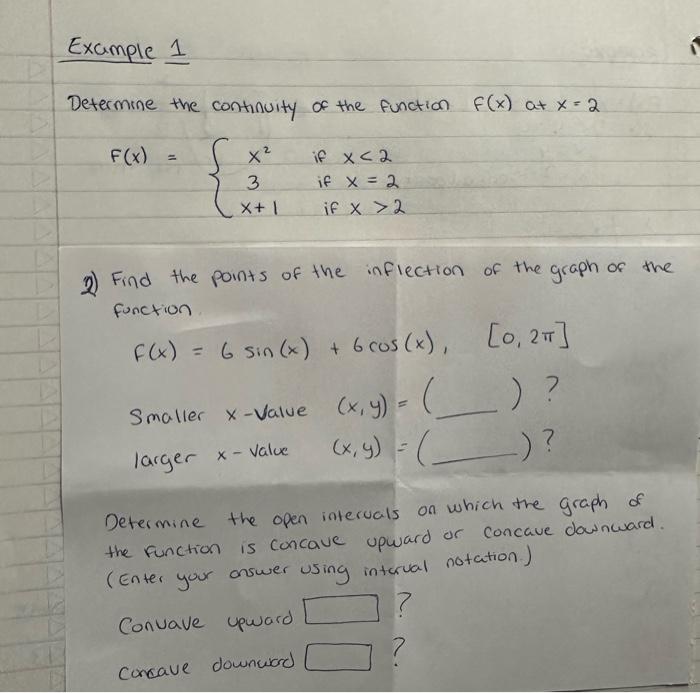 Example 1
Determine the continuity of the function f(x) at x = 2
F(x) = { x² if x < 2
3 if x = 2
x + 1 if x > 2
2) Find the points of the inflection of the graph of the
function.
f(x) = 6 sin(x) + 6 cos(x), [0, 2π]
Smaller x-Value (x, y) = (___) ?
larger x-Value (x, y) = (____) ?
Determine the open intervals on which the graph of
the function is concave upward or concave downward.
(Enter your answer using interval notation.)
Convave upward ?
concave downward ?